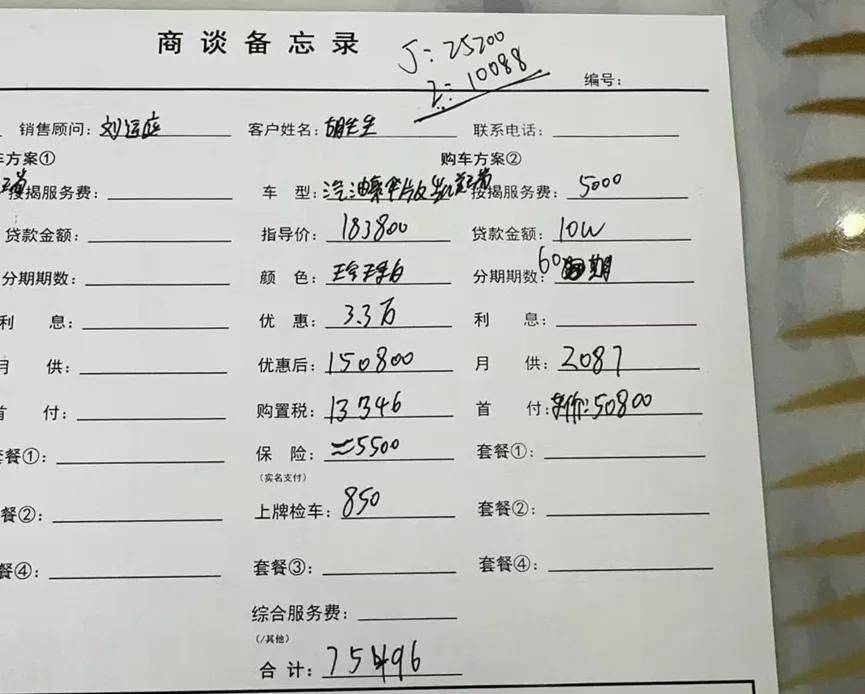 商谈备忘录
J: 25200
2: 10088
编号:
销售顾问: 刘运应 客户姓名: 胡先生 联系电话:
车方案① 购车方案②
按揭服务费: 车 型: 汽油豪华版 按揭服务费: 5000
贷款金额: 指导价: 183800 贷款金额: 10W
分期期数: 颜 色: 珍珠白 分期期数: 60期
利 息: 优 惠: 3.3万 利 息:
月 供: 优惠后: 150800 月 供: 2087
首 付: 购置税: 13346 首 付: 车价: 50800
套餐①: 保 险: ≈5500 套餐①:
(实名支付)
餐②: 上牌检车: 850 套餐②:
餐④: 套餐③: 套餐④:
综合服务费:
(/其他)
合 计: 75496